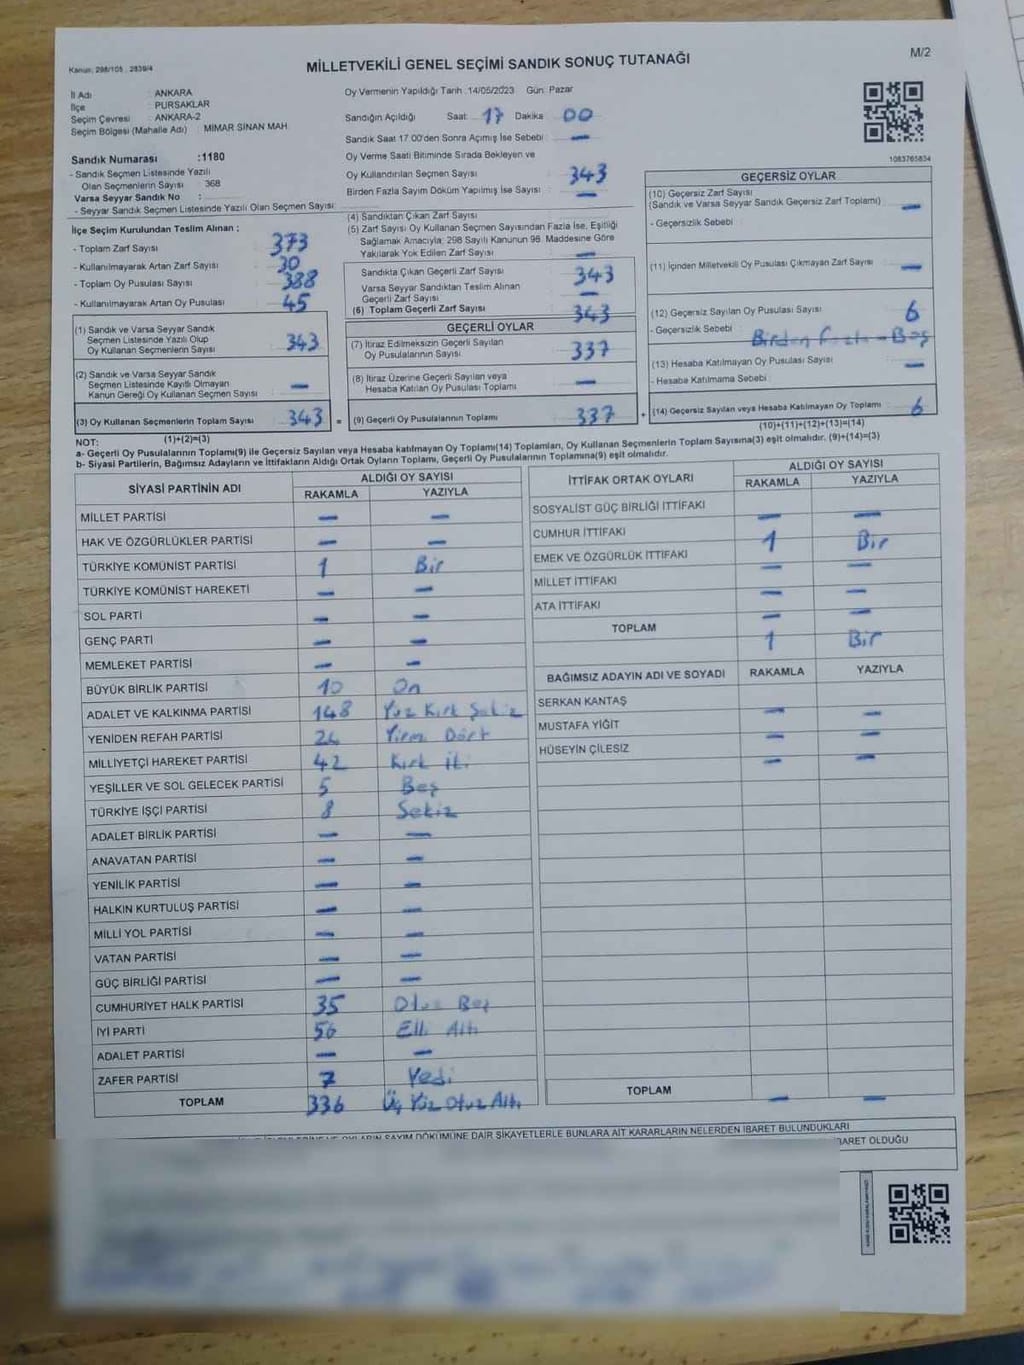 Kanun: 298/105 , 2839/4
MİLLETVEKİLİ GENEL SEÇİMİ SANDIK SONUÇ TUTANAĞI
M/2
İl Adı : ANKARA
İlçe : PURSAKLAR
Seçim Çevresi : ANKARA-2
Seçim Bölgesi (Mahalle Adı) : MİMAR SİNAN MAH.
Sandık Numarası :1180
- Sandık Seçmen Listesinde Yazılı
Olan Seçmenlerin Sayısı : 368
Varsa Seyyar Sandık No :
- Seyyar Sandık Seçmen Listesinde Yazılı Olan Seçmen Sayısı:
Oy Vermenin Yapıldığı Tarih :14/05/2023 Gün: Pazar
Sandığın Açıldığı Saat: 17 Dakika 00
Sandık Saat 17:00'den Sonra Açılmış İse Sebebi : —
Oy Verme Saati Bitiminde Sırada Bekleyen ve
Oy Kullandırılan Seçmen Sayısı 343
Birden Fazla Sayım Döküm Yapılmış İse Sayısı : —
1083765834
İlçe Seçim Kurulundan Teslim Alınan ;
- Toplam Zarf Sayısı 373
- Kullanılmayarak Artan Zarf Sayısı 30
- Toplam Oy Pusulası Sayısı 388
- Kullanılmayarak Artan Oy Pusulası 45
(1) Sandık ve Varsa Seyyar Sandık
Seçmen Listesinde Yazılı Olup
Oy Kullanan Seçmenlerin Sayısı 343
(2) Sandık ve Varsa Seyyar Sandık
Seçmen Listesinde Kayıtlı Olmayan
Kanun Gereği Oy Kullanan Seçmen Sayısı —
(3) Oy Kullanan Seçmenlerin Toplam Sayısı 343 =
(1)+(2)=(3)
(4) Sandıktan Çıkan Zarf Sayısı
(5) Zarf Sayısı Oy Kullanan Seçmen Sayısından Fazla İse, Eşitliği
Sağlamak Amacıyla; 298 Sayılı Kanunun 98. Maddesine Göre
Yakılarak Yok Edilen Zarf Sayısı —
Sandıkta Çıkan Geçerli Zarf Sayısı 343
Varsa Seyyar Sandıktan Teslim Alınan
Geçerli Zarf Sayısı —
(6) Toplam Geçerli Zarf Sayısı 343
GEÇERLİ OYLAR
(7) İtiraz Edilmeksizin Geçerli Sayılan
Oy Pusulalarının Sayısı 337
(8) İtiraz Üzerine Geçerli Sayılan veya
Hesaba Katılan Oy Pusulası Toplamı —
(9) Geçerli Oy Pusulalarının Toplamı 337 +
GEÇERSİZ OYLAR
(10) Geçersiz Zarf Sayısı
(Sandık ve Varsa Seyyar Sandık Geçersiz Zarf Toplamı) —
- Geçersizlik Sebebi :
(11) İçinden Milletvekili Oy Pusulası Çıkmayan Zarf Sayısı —
(12) Geçersiz Sayılan Oy Pusulası Sayısı 6
- Geçersizlik Sebebi : Birden Fazla - Boş
(13) Hesaba Katılmayan Oy Pusulası Sayısı —
- Hesaba Katılmama Sebebi :
(14) Geçersiz Sayılan veya Hesaba Katılmayan Oy Toplamı 6
(10)+(11)+(12)+(13)=(14)
NOT:
a- Geçerli Oy Pusulalarının Toplamı(9) ile Geçersiz Sayılan veya Hesaba katılmayan Oy Toplamı(14) Toplamları, Oy Kullanan Seçmenlerin Toplam Sayısına(3) eşit olmalıdır. (9)+(14)=(3)
b- Siyasi Partilerin, Bağımsız Adayların ve İttifakların Aldığı Ortak Oyların Toplamı, Geçerli Oy Pusulalarının Toplamına(9) eşit olmalıdır.
SİYASİ PARTİNİN ADI ALDIĞI OY SAYISI
RAKAMLA YAZIYLA
MİLLET PARTİSİ — —
HAK VE ÖZGÜRLÜKLER PARTİSİ — —
TÜRKİYE KOMÜNİST PARTİSİ 1 Bir
TÜRKİYE KOMÜNİST HAREKETİ — —
SOL PARTİ — —
GENÇ PARTİ — —
MEMLEKET PARTİSİ — —
BÜYÜK BİRLİK PARTİSİ 10 On
ADALET VE KALKINMA PARTİSİ 148 Yüz Kırk Sekiz
YENİDEN REFAH PARTİSİ 24 Yirmi Dört
MİLLİYETÇİ HAREKET PARTİSİ 42 Kırk İki
YEŞİLLER VE SOL GELECEK PARTİSİ 5 Beş
TÜRKİYE İŞÇİ PARTİSİ 8 Sekiz
ADALET BİRLİK PARTİSİ — —
ANAVATAN PARTİSİ — —
YENİLİK PARTİSİ — —
HALKIN KURTULUŞ PARTİSİ — —
MİLLİ YOL PARTİSİ — —
VATAN PARTİSİ — —
GÜÇ BİRLİĞİ PARTİSİ — —
CUMHURİYET HALK PARTİSİ 35 Otuz Beş
İYİ PARTİ 56 Elli Altı
ADALET PARTİSİ — —
ZAFER PARTİSİ 7 Yedi
TOPLAM 336 Üç Yüz Otuz Altı
İTTİFAK ORTAK OYLARI ALDIĞI OY SAYISI
RAKAMLA YAZIYLA
SOSYALİST GÜÇ BİRLİĞİ İTTİFAKI — —
CUMHUR İTTİFAKI 1 Bir
EMEK VE ÖZGÜRLÜK İTTİFAKI — —
MİLLET İTTİFAKI — —
ATA İTTİFAKI — —
TOPLAM 1 Bir
BAĞIMSIZ ADAYIN ADI VE SOYADI RAKAMLA YAZIYLA
SERKAN KANTAŞ — —
MUSTAFA YİĞİT — —
HÜSEYİN ÇİLESİZ — —
TOPLAM — —
OYLARIN SAYIM DÖKÜMÜNE DAİR ŞİKAYETLERLE BUNLARA AİT KARARLARIN NELERDEN İBARET BULUNDUKLARI
İBARET OLDUĞU